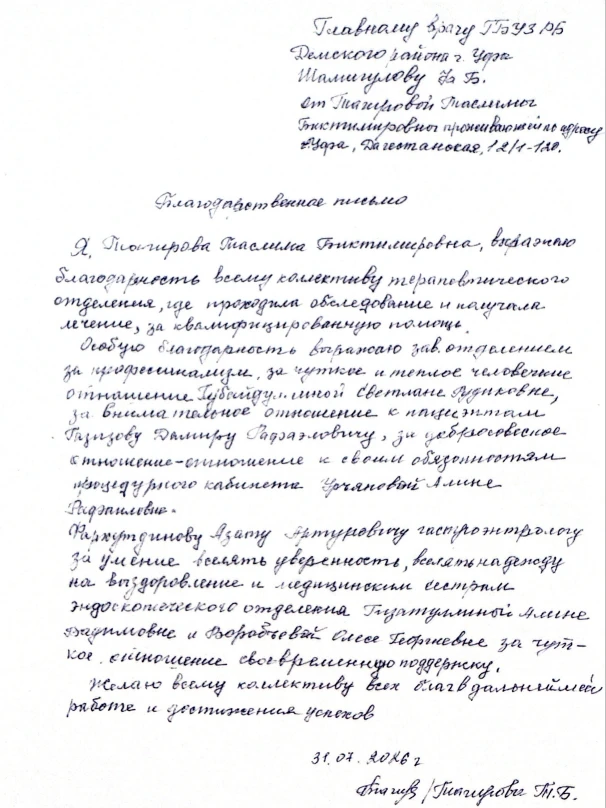 Главному врачу ГБУЗ РБ
Демского района г. Уфа
Шамигулову Ф. Б.
от Тагировой Таслимы
Биктимировны проживающей по адресу
г. Уфа, Дагестанская, 12/1-120.
Благодарственное письмо
Я, Тагирова Таслима Биктимировна, выражаю
благодарность всему коллективу терапевтического
отделения, где проходила обследование и получала
лечение, за квалифицированную помощь.
Особую благодарность выражаю зав. отделением
за профессионализм, за чуткое и теплое человеческие
отношение Губайдуллиной Светлане Рудиковне,
за внимательное отношение к пациентам
Газизову Дамиру Рафаэловичу, за добросовесное
отношение-отношение к своим обязонностям
процедурного кабинета Алине
Рафаиловне.
Фархутдинову Азату Артуровичу гастроэнтрологу
за умение вселять уверенность, вселять надежду
на выздоровление и медицинским сестрам
эндоскопического отделения Гизатуллиный Алине
Вадимовне и Воробьевой Олесе Георгиевне за чут-
кое отношение своевременную поддержку.
Желаю всему коллективу всех благ в дальнеймей
работе и достижения успехов
31.07.2026 г
/Тагирова Т.Б.